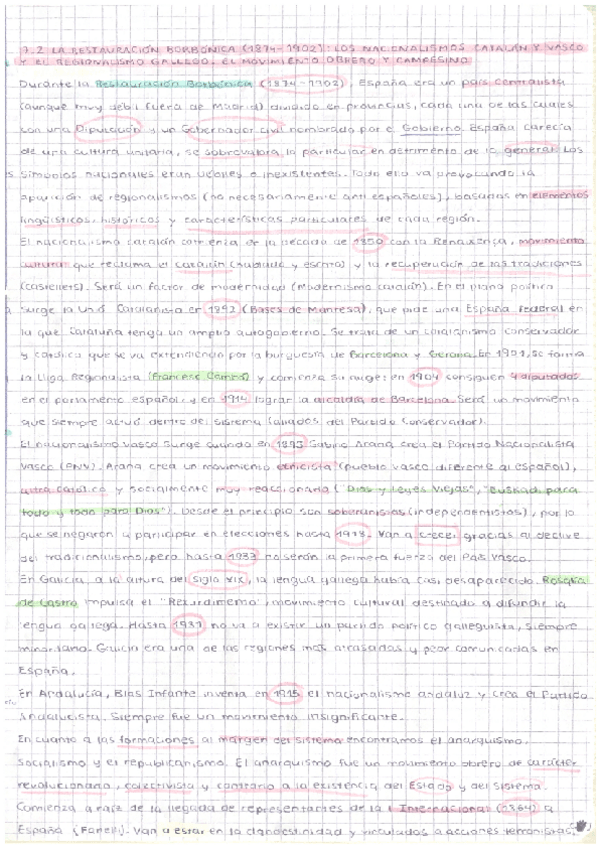 7.2 LA RESTAURACIÓN BORBÓNICA (1874-1902): LOS NACIONALISMOS CATALÁN Y VASCO
Y EL REGIONALISMO GALLEGO. EL MOVIMIENTO OBRERO Y CAMPESINO
Durante la Restauración Borbónica (1874-1902), España era un país centralista
(aunque muy débil fuera de Madrid) dividido en provincias, cada una de las cuales
con una Diputación y un Gobernador civil nombrado por el Gobierno. España carecía
de una cultura unitaria, se sobrevaloraba lo particular en detrimento de lo general. Los
símbolos nacionales eran débiles o inexistentes. Todo ello va provocando la
aparición de regionalismos (no necesariamente anti españoles), basados en elementos
lingüísticos, históricos y características particulares de cada región.
El nacionalismo catalán comienza en la década de 1850 con la Renaixença, movimiento
cultural que reclama el catalán (hablado y escrito) y la recuperación de las tradiciones
(castellers). Será un factor de modernidad (Modernismo catalán). En el plano político
surge la Unió Catalanista en 1892 (Bases de Manresa), que pide una España federal en
la que Cataluña tenga un amplio autogobierno. Se trata de un catalanismo conservador
y católico que se va extendiendo por la burguesía de Barcelona y Gerona. En 1901, se forma
la Liga Regionalista (Francesc Cambó) y comienza su auge: en 1904 consiguen 4 diputados
en el parlamento español, y en 1914 lograr la alcaldía de Barcelona. Será un movimiento
que siempre actuó dentro del sistema (aliados del Partido Conservador).
El nacionalismo vasco surge cuando en 1895 Sabino Arana crea el Partido Nacionalista
Vasco (PNV). Arana crea un movimiento etnicista (pueblo vasco diferente al español),
ultra católico y socialmente muy reaccionaria ("Dios y Leyes Viejas", "Euskadi para
todo y todo para Dios"). Desde el principio son soberanistas (independentistas), por lo
que se negaron a participar en elecciones hasta 1918. Van a crecer gracias al declive
del tradicionalismo, pero hasta 1933 no serán la primera fuerza del País Vasco.
En Galicia, a la altura del siglo XIX, la lengua gallega había casi desaparecido. Rosalía
de Castro impulsa el "Rexurdimento", movimiento cultural destinado a difundir la
lengua gallega. Hasta 1931 no va a existir un partido político galleguista, siempre
minoritario. Galicia era una de las regiones más atrasadas y peor comunicadas en
España.
En Andalucía, Blas Infante inventa en 1915 el nacionalismo andaluz y crea el Partido
Andalucista. Siempre fue un movimiento insignificante.
En cuanto a las formaciones al margen del sistema encontramos el anarquismo,
socialismo y el republicanismo. El anarquismo fue un movimiento obrero de carácter
revolucionario, colectivista y contrario a la existencia del Estado y del sistema.
Comienza a raíz de la llegada de representantes de la I Internacional (1864) a
España (Fanelli). Van a estar en la clandestinidad y vinculados a acciones terroristas,